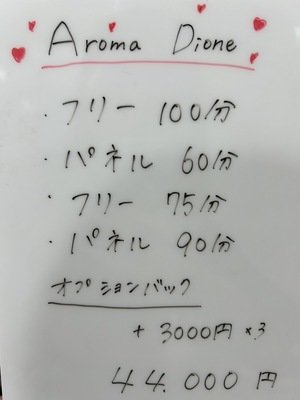 Aroma Dione
・フリー 100分
・パネル 60分
・フリー 75分
・パネル 90分
オプションバック
+ 3000円 ×3
44.000円